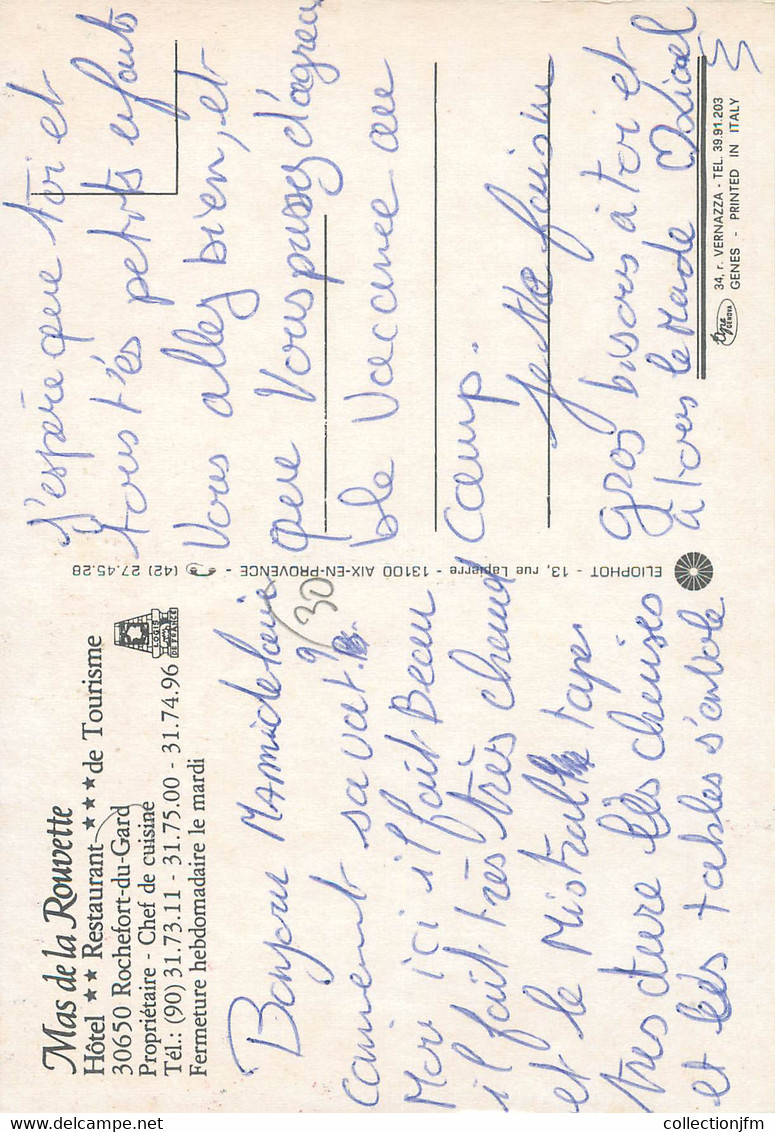 Mas de la Rouvette
Hôtel ★★ Restaurant ★★★ de Tourisme
30650 Rochefort-du-Gard
Propriétaire - Chef de cuisine
Tél.: (90) 31.73.11 - 31.75.00 - 31.74.96
Fermeture hebdomadaire le mardi
LOGIS
DE FRANCE
Bonjour Mamie
Coment sa vat?
30
Moi ici il fait Beau
il fait très très chaud
et le Mistral tape
tres dure lès chaises
et lès tables s'envole
ELIOPHOT - 13, rue Lapierre - 13100 AIX-EN-PROVENCE - (42) 27.45.28
J'espère que toi et
tous t'ès petits enfants
Vous allez bien, et
que Vous passez d'agrea
ble Vacance au
Camp.
Je te fais
gros bisous à toi et
a tous le Monde ♡ Lionel
34, r. VERNAZZA - TEL. 39.91.203
GENES - PRINTED IN ITALY
GENOVA
collectionjfm